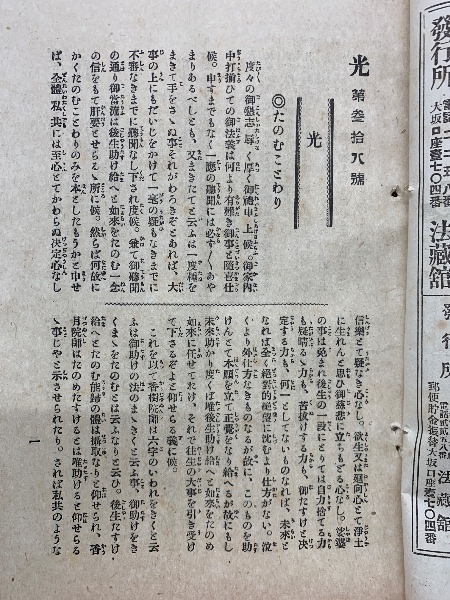 發行所
大坂口座壹七〇四番
法藏館
發行所
郵便貯金振替大坂口座壹七〇四番
法藏館
光 第參拾八號
光
◎たのむことわり
度々の御懇志辱く厚く御禮申上候。御家内
中打揃ひての御法義は何より有難き御事と隨喜仕
候。申すまでもなく一應の聽聞には必ず〱あや
まりあるべしとも、又まきたてと云ふは一度種を
まきて手をさゝぬ事それがわろきぞとあれば、大
事の上にもだいじをかけて一毫の疑もなきまでに
不審なきまでに聽聞なし下され度候。兼て御聽聞
の通り御當流は後生助け給へと如來をたのむ一念
の信をもて肝要とせらるゝ所に候。然らば何故に
かくたのむことわりのみを本としたもうかと申せ
ば、全體私共には至心とてかわらぬ決定心なし
信樂とて疑なき心なし。欲生又は廻向心とて淨土
に生れんと思ひ御慈悲に立ちもどる心なし。娑婆
の事は免まれ後生の一段にとりては自力捨てる力
も疑晴るゝ力も、苦拔けする力も、御たすけと決
定する力も、何一としてないものなれば、未來と
なれば全く絕望的絕望に沈むより仕方がない。泣
くより外仕方なきものなるが故に、このものを助
けんとて本願を立て正覺をなり給へるが故にもし
未來助かり度くば唯後生助け給へと如來をたのめ
如來に任せておけ、それで往生の大事を引き受け
て下さるぞよと仰せらるゝ義に候。
これを以て香樹院師は六字のいわれをきくと云
ふは御助けの法のまゝきくと云ふ事、御助けをき
くまゝをたのむとは云ふなりと云ひ。後生たすけ
給へとたのむ能歸の體は攝取なりと仰せられ、香
月院師はたのめたすけるとは唯助けると仰せらる
る事じやと示させられたり。されば私共のような
一